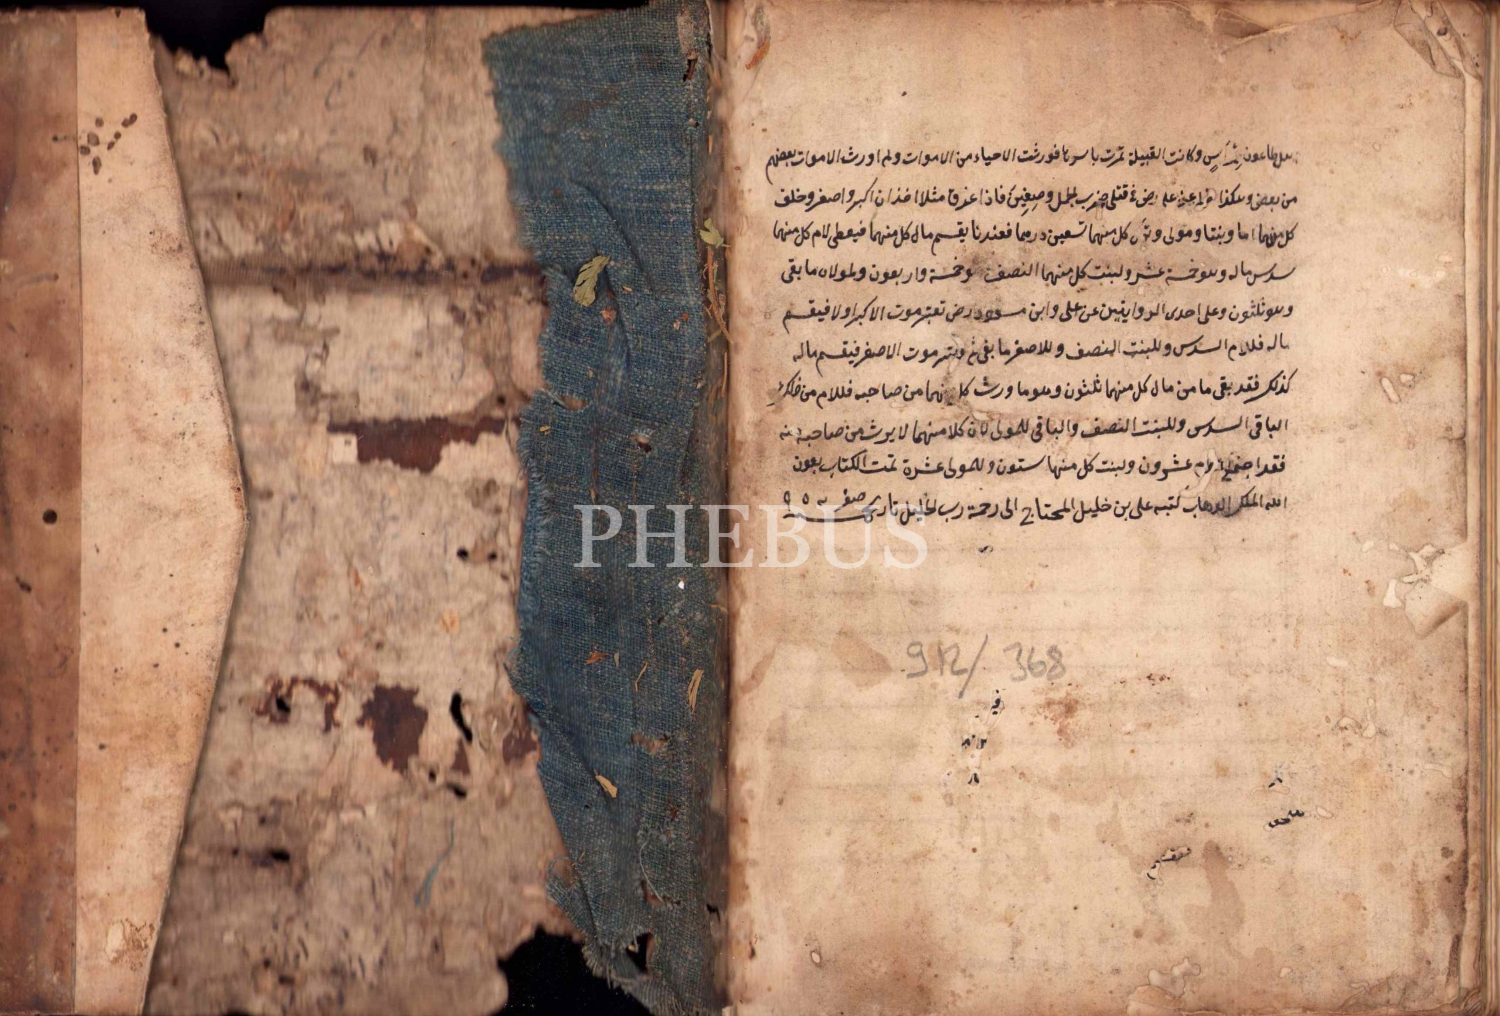 وكانت القبيلة تموت باسرها فورثت الاحياء من الاموات ولم اورث الاموات بعضهم
من بعض وهكذا في قتلى حرب الجمل وصفين فاذا غرق مثلا اخذان اكبر واصغر وخلف
كل منهما اما وبنتا ومولى وترك كل منهما تسعين درهما فعندنا يقسم مال كل منهما فيعطى لام كل منهما
سدس ماله وهو خمسة عشر ولبنت كل منهما النصف وهو خمسة واربعون ولمولاه ما بقى
وهو ثلثون وعلى احدى الروايتين عن على وابن مسعود رض تعتبر موت الاكبر اولا فيقسم
ماله فللام السدس وللبنت النصف وللاصغر ما بقى ثم موت الاصغر فيقسم ماله
كذلك فقد بقى ما من مال كل منهما ثلثون وهو ما ورث كل منهما من صاحبه فللام من ذلك
الباقى السدس وللبنت النصف والباقى للمولى لان كلا منهما لا يرث من صاحبه
فقد اجتمع عشرون ولبنت كل منهما ستون وللمولى عشرة تمت الكتاب بعون
الله الملك الوهاب كتبه على بن خليل المحتاج الى رحمة رب الجليل
PHEBUS
912/ 368